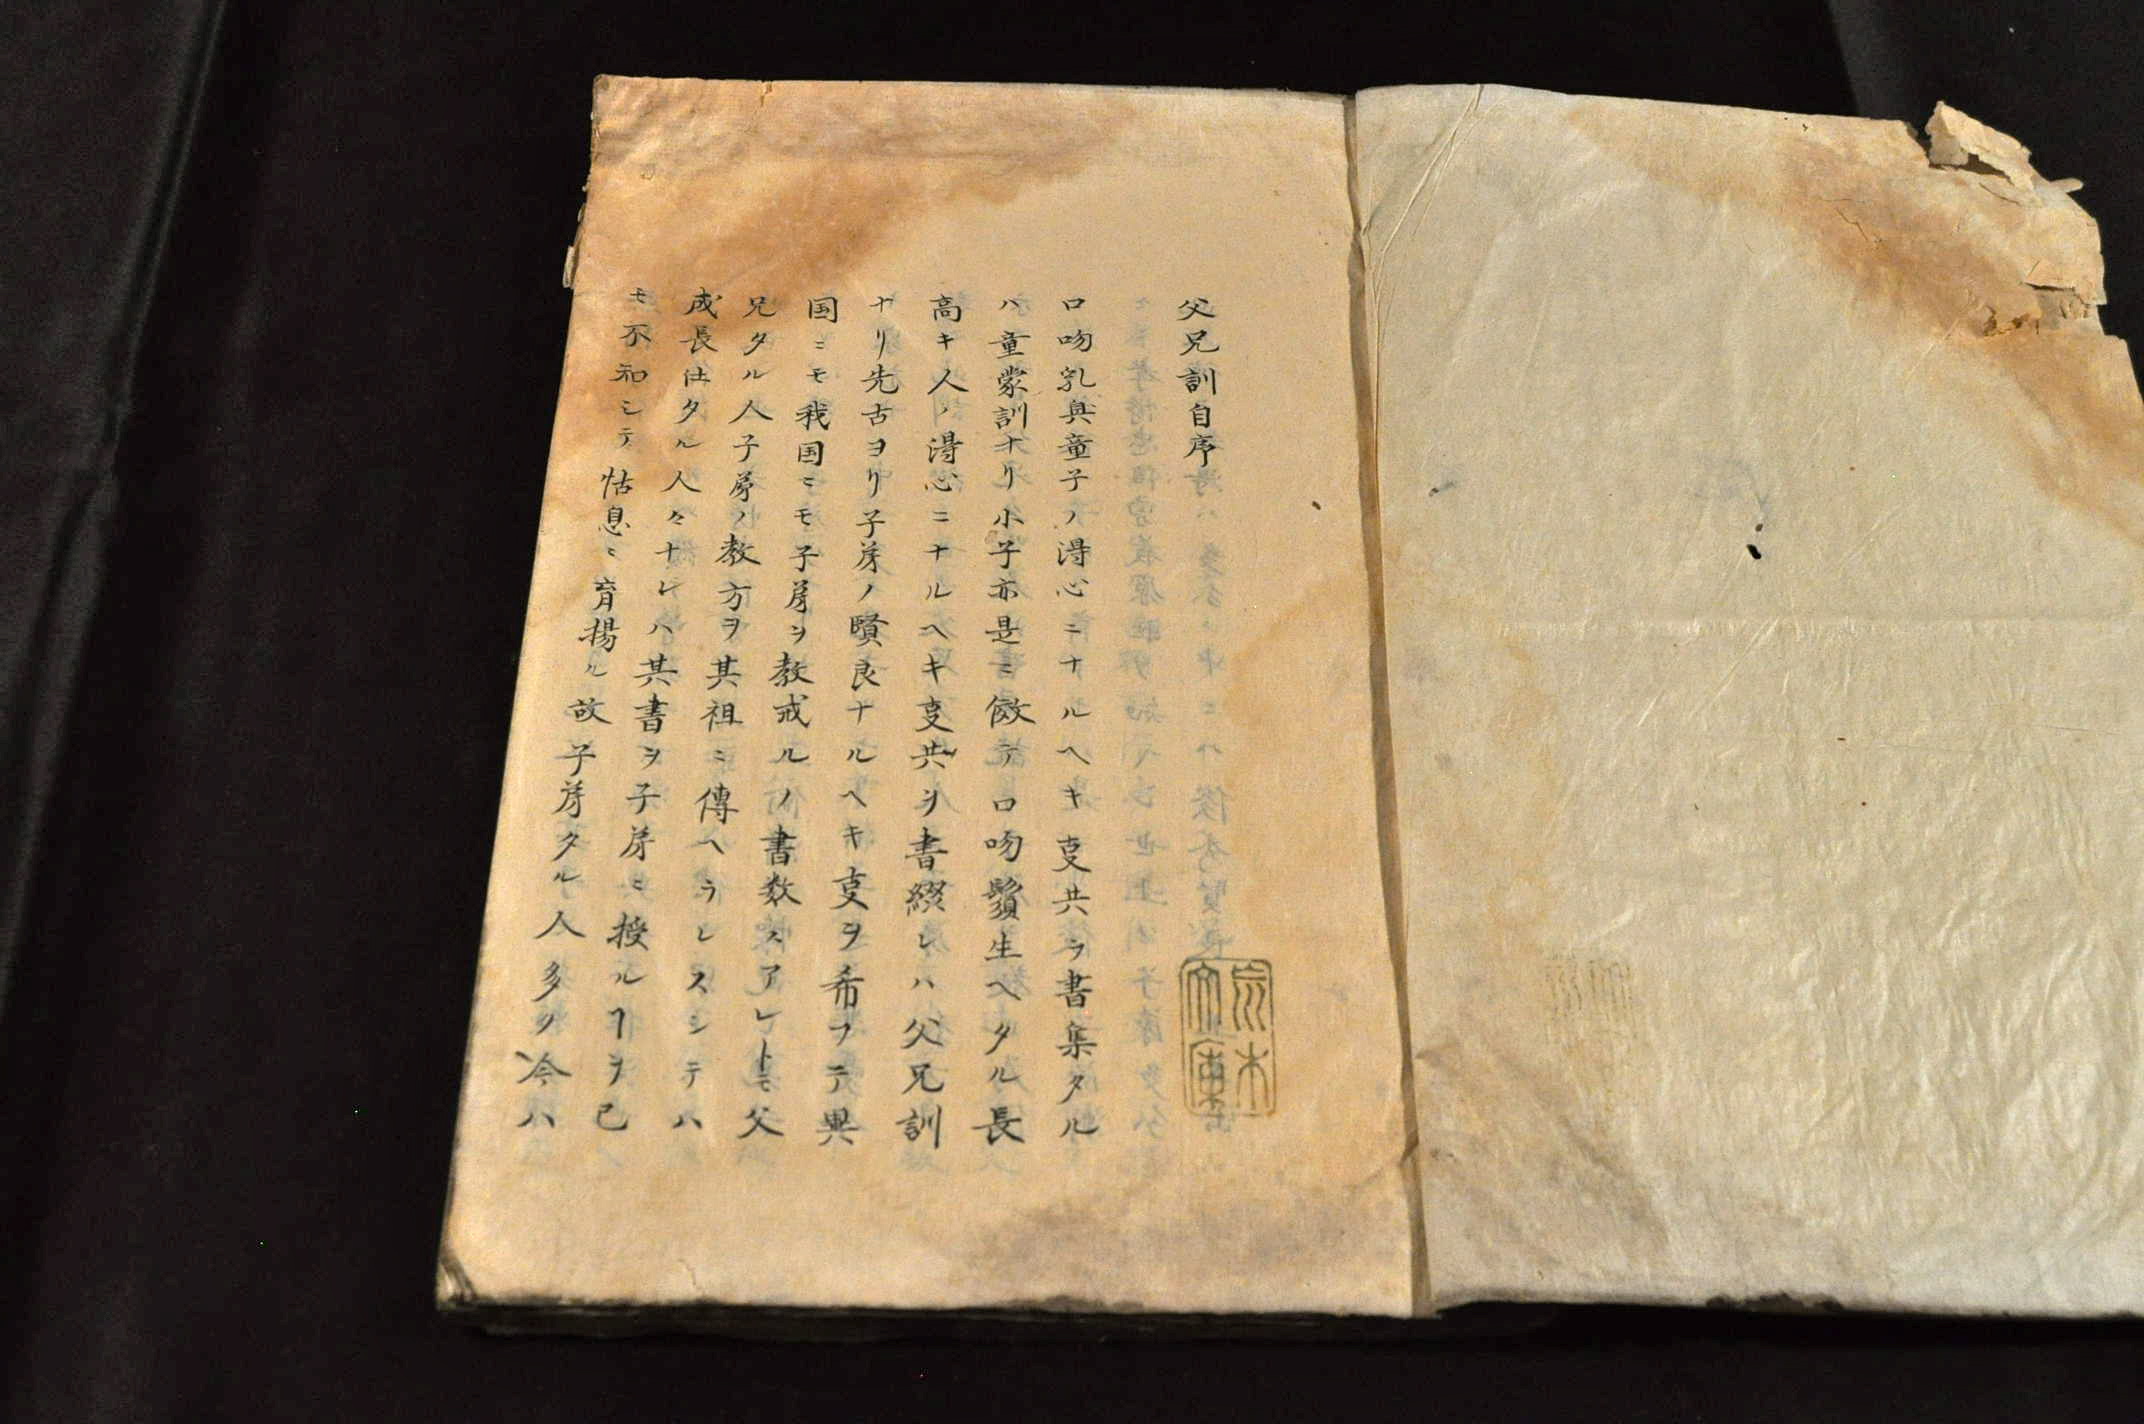 父兄訓自序
口吻乳臭童子ノ得心ニナルヘキ㕝共ヲ書集タル
ハ童蒙訓ナリ小子亦是ニ倣テ口吻鬚生ヘタル長
高キ人ノ得心ニナルヘキ㕝共ヲ書綴レハ父兄訓
ナリ先古ヨリ子弟ノ賢良ナルヘキ㕝ヲ希フテ異
国ニモ我国ニモ子弟ヲ教戒ルノ書数々アレトモ父
兄タル人子弟ノ教方ヲ其祖ニ傳ヘラレスシテハ
成長仕タル人々ナレハ其書ヲ子弟ニ授ルヿヲ已
モ不知シテ怙息ニ育揚ル故子弟タル人多ク冷ハ
荒木
文庫